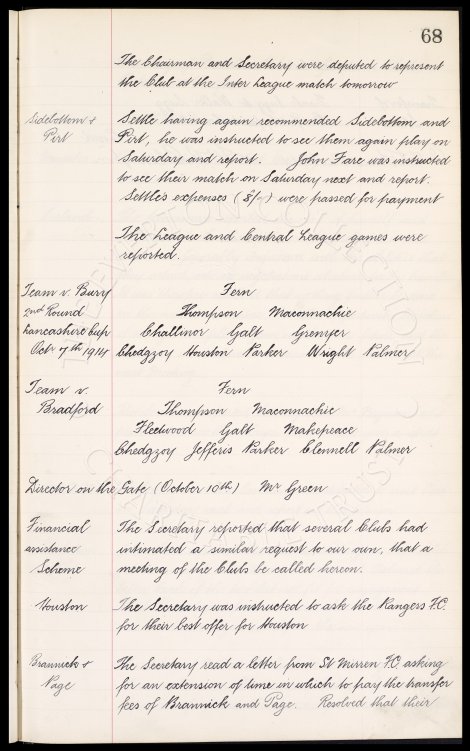 68
The Chairman and Secretary were deputed to represent
the Club at the Inter League match tomorrow
Sidebottom +
Pirt
Settle having again recommended Sidebottom and
Pirt, he was instructed to see them again play on
Saturday and report. John Fare was instructed
to see their match on Saturday next and report.
Settle's expenses (8/-) were passed for payment
The League and Central League games were
reported.
Team v. Bury
2nd Round
Lancashire Cup
Octr 7th 1914
Fern
Thompson Maconnachie
Challinor Galt Grenyer
Chedgzoy Houston Parker Wright Palmer
Team v.
Bradford
Fern
Thompson Maconnachie
Fleetwood Galt Makepeace
Chedgzoy Jefferis Parker Clennell Palmer
Director on the Gate (October 10th) Mr Green
Financial
assistance
Scheme
The Secretary reported that several Clubs had
intimated a similar request to our own, that a
meeting of the Clubs be called hereon.
Houston
The Secretary was instructed to ask the Rangers F.C.
for their best offer for Houston
Brannick +
Page
The Secretary read a letter from St Mirren F.C. asking
for an extension of time in which to pay the transfer
fees of Brannick and Page. Resolved that their